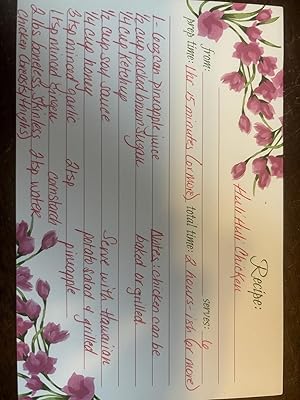 Recipe:
Huli Huli Chicken
from: serves: 6
prep time: 1hr 15 minutes (or more) total time: 2 hours - ish (or more)
1- 6oz can pineapple juice Notes: chicken can be
1/2 cup packed brown sugar baked or grilled.
1/4 cup ketchup
1/2 cup soy sauce Serve with Hawaiian
1/4 cup honey potato salad & grilled
3 tsp minced garlic 2 tsp pineapple
1 tsp minced ginger cornstarch
2 lbs boneless, skinless 2 tsp water
chicken breasts/thighs